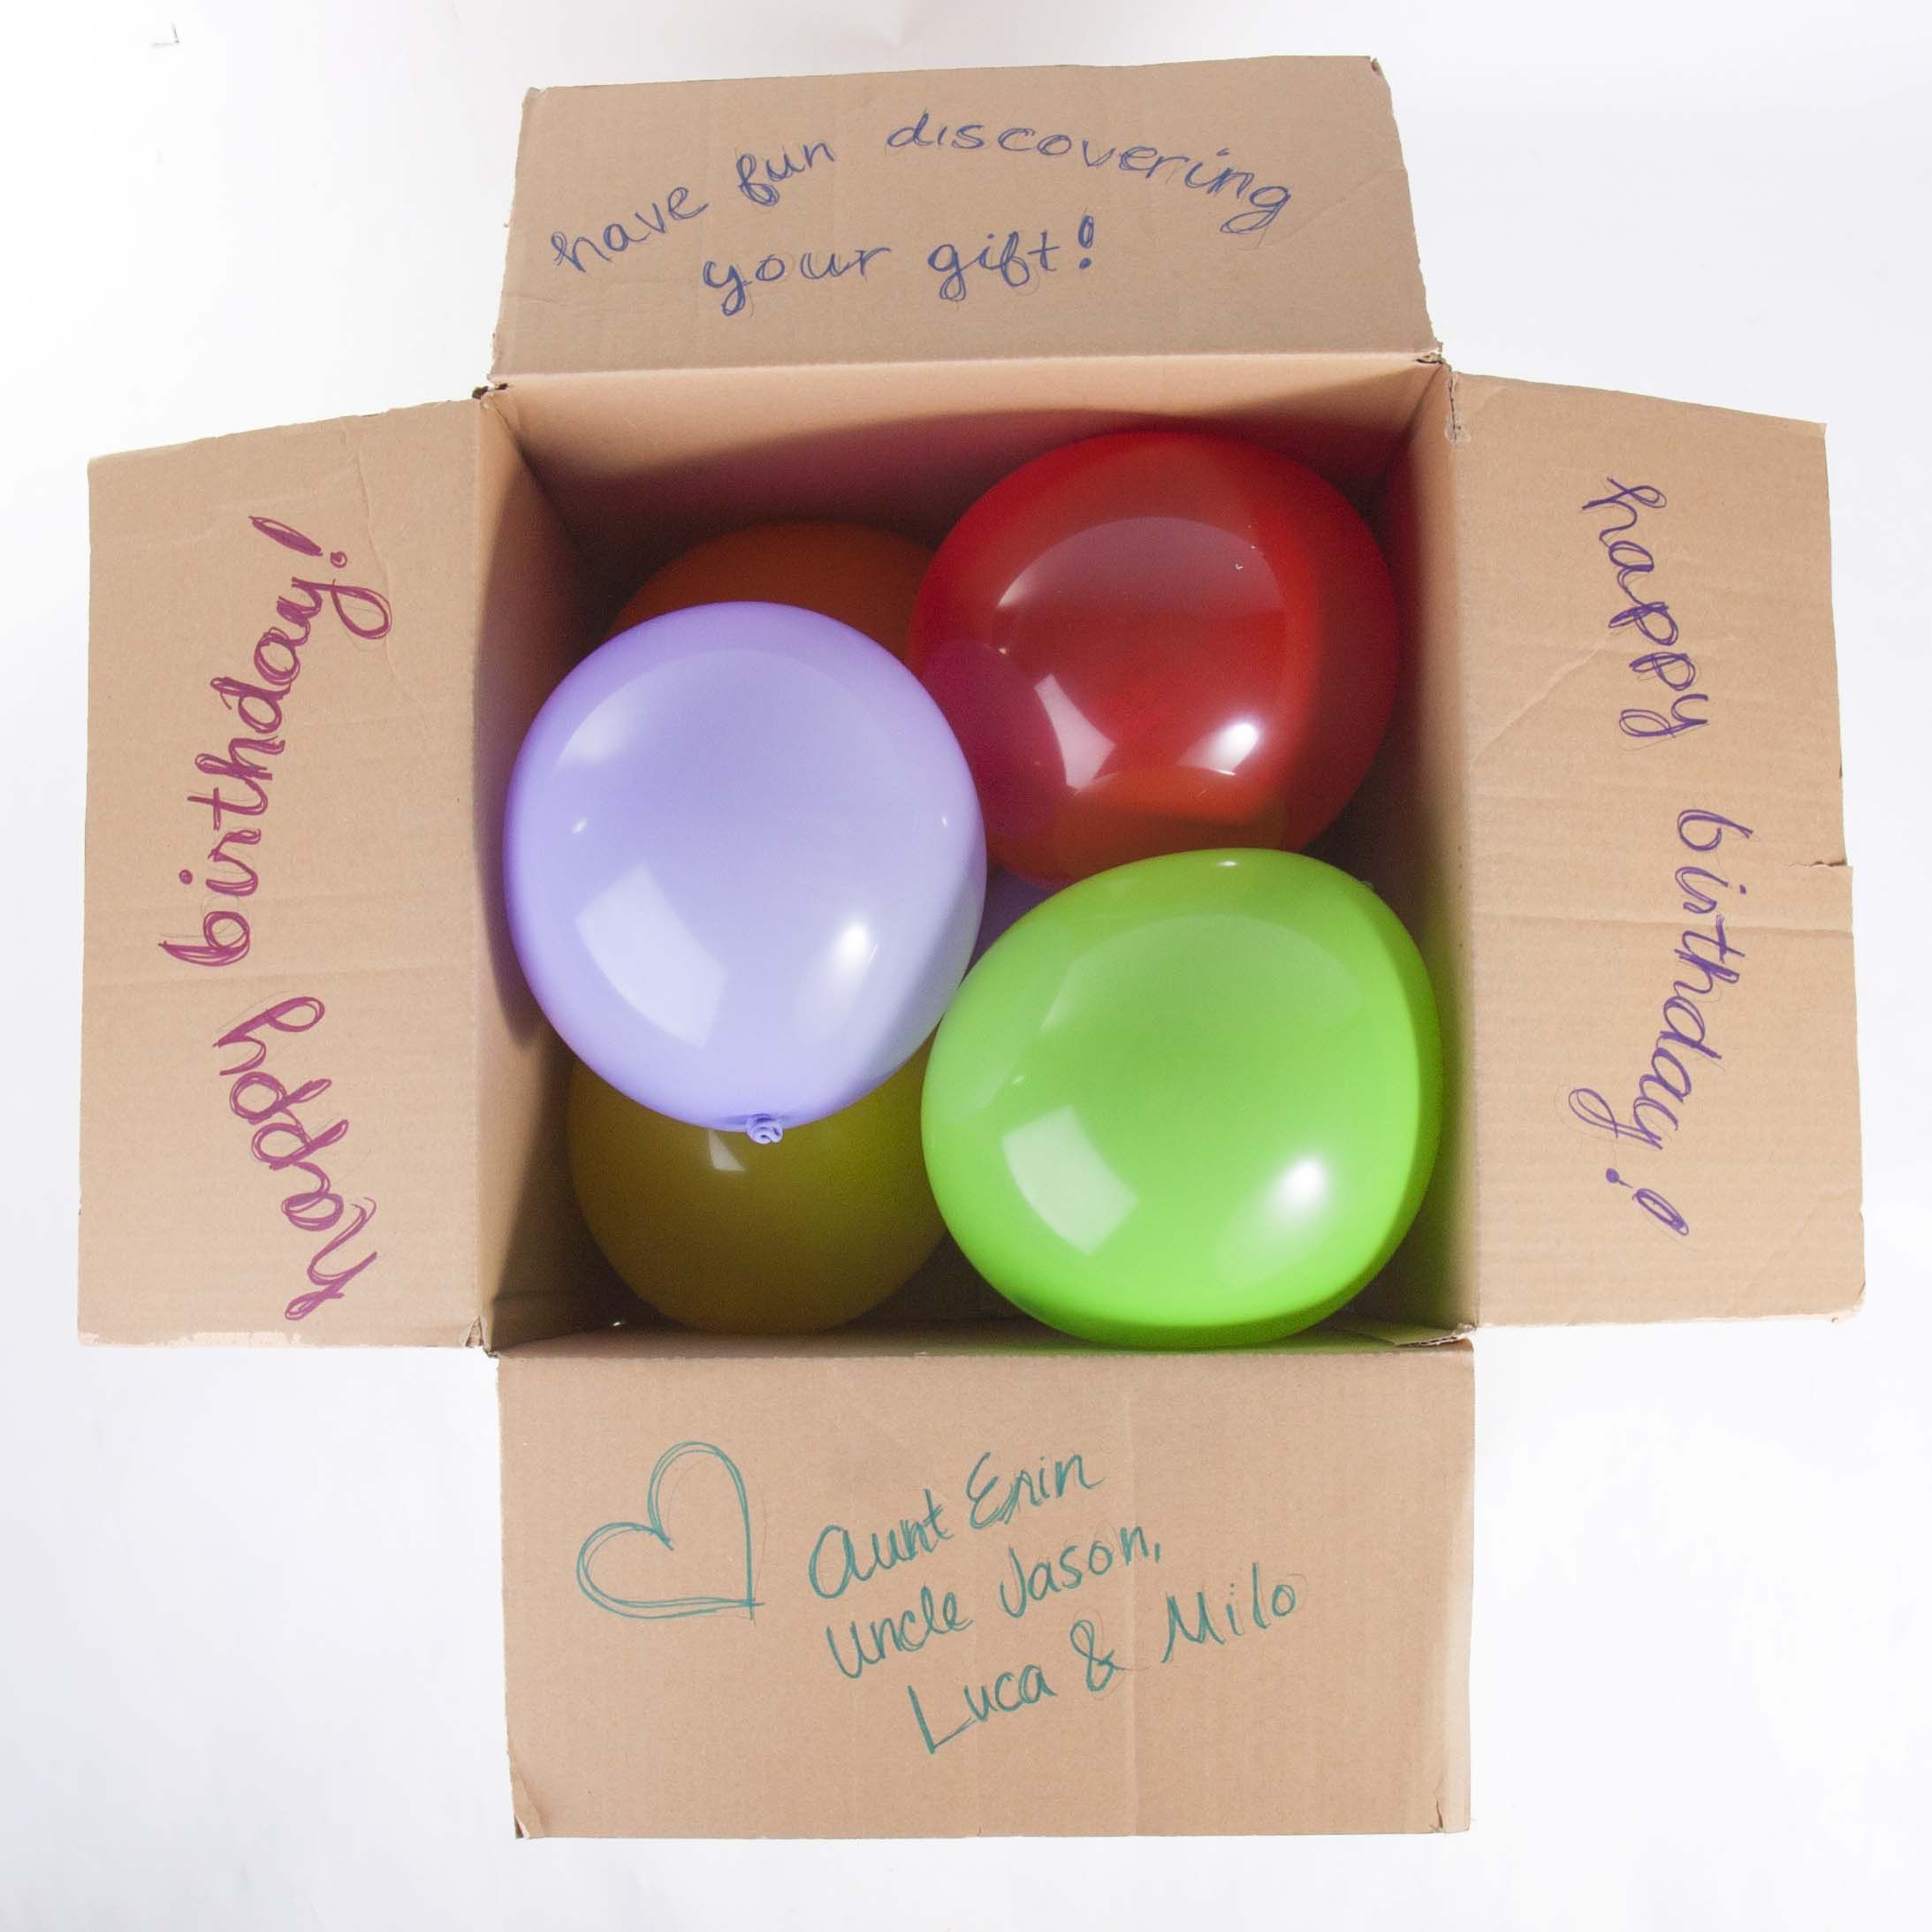 have fun discovering
your gift!
happy birthday!
happy birthday!
Aunt Erin
Uncle Jason,
Luca & Milo